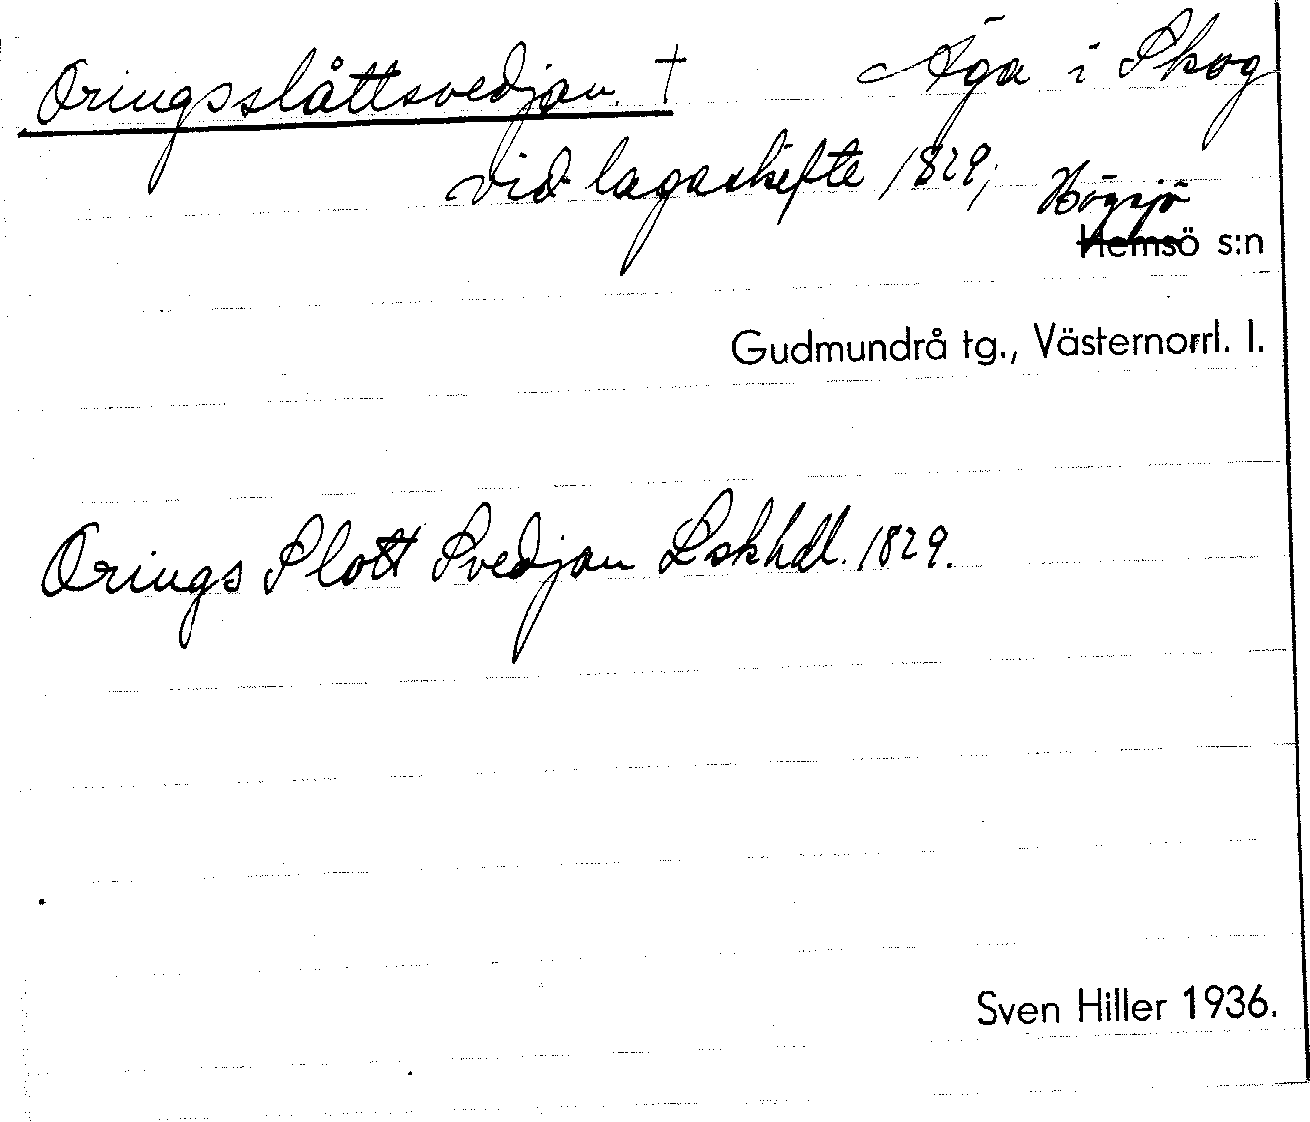 Oringsslåttsvedjan. † Äga i Skog
vid lagaskifte 1829, Högsjö
Hemsö s:n
Gudmundrå tg., Västernorrl. l.
Orings Slott Svedjan Lskhdl. 1829.
Sven Hiller 1936.